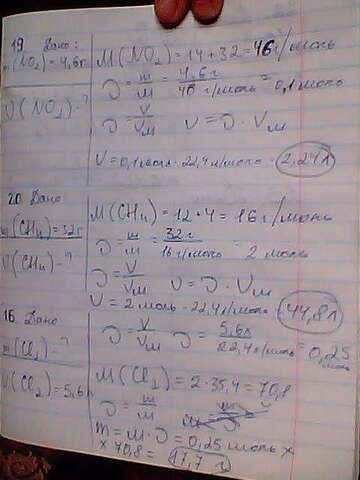 19. Дано:
m(NO₂)=4,6г
V(NO₂)-?
M(NO₂)=14+32=46г/моль
ν=m/M=4,6г/46 г/моль=0,1моль
ν=V/Vм V=ν·Vм
V=0,1моль·22,4л/моль=2,24л
20. Дано
m(CH₄)=32г
V(CH₄)-?
M(CH₄)=12+4=16г/моль
ν=m/M=32г/16г/моль=2 моль
ν=V/Vм V=ν·Vм
V=2 моль·22,4л/моль=44,8л
16. Дано
m(Cl₂)-?
V(Cl₂)=5,6л
ν=V/Vм ν=5,6л/22,4л/моль=0,25 моль
M(Cl₂)=2·35,4=70,8
ν=m/M
m=M·ν=0,25моль×
×70,8=17,7 г